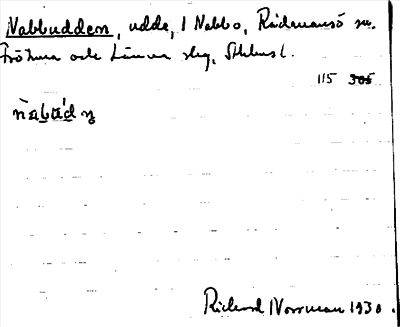 Nabbudden, udde, i Nabbo, Rådmansö sn.
Fröhuna och Länna slg, Sthlms l.
115 305
Rickard Norrman 1930.